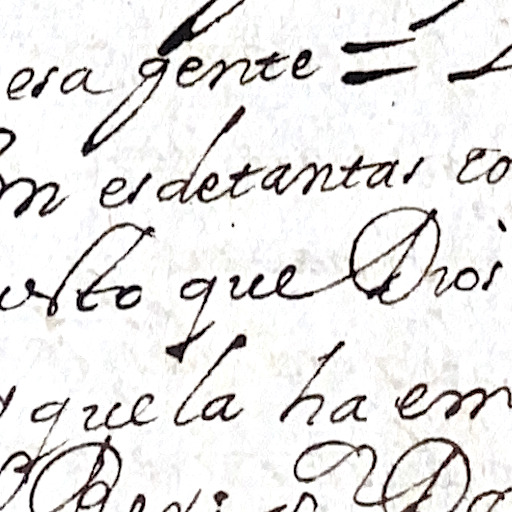 esa gente =
n es detantas co
usto que Dios
que la ha em